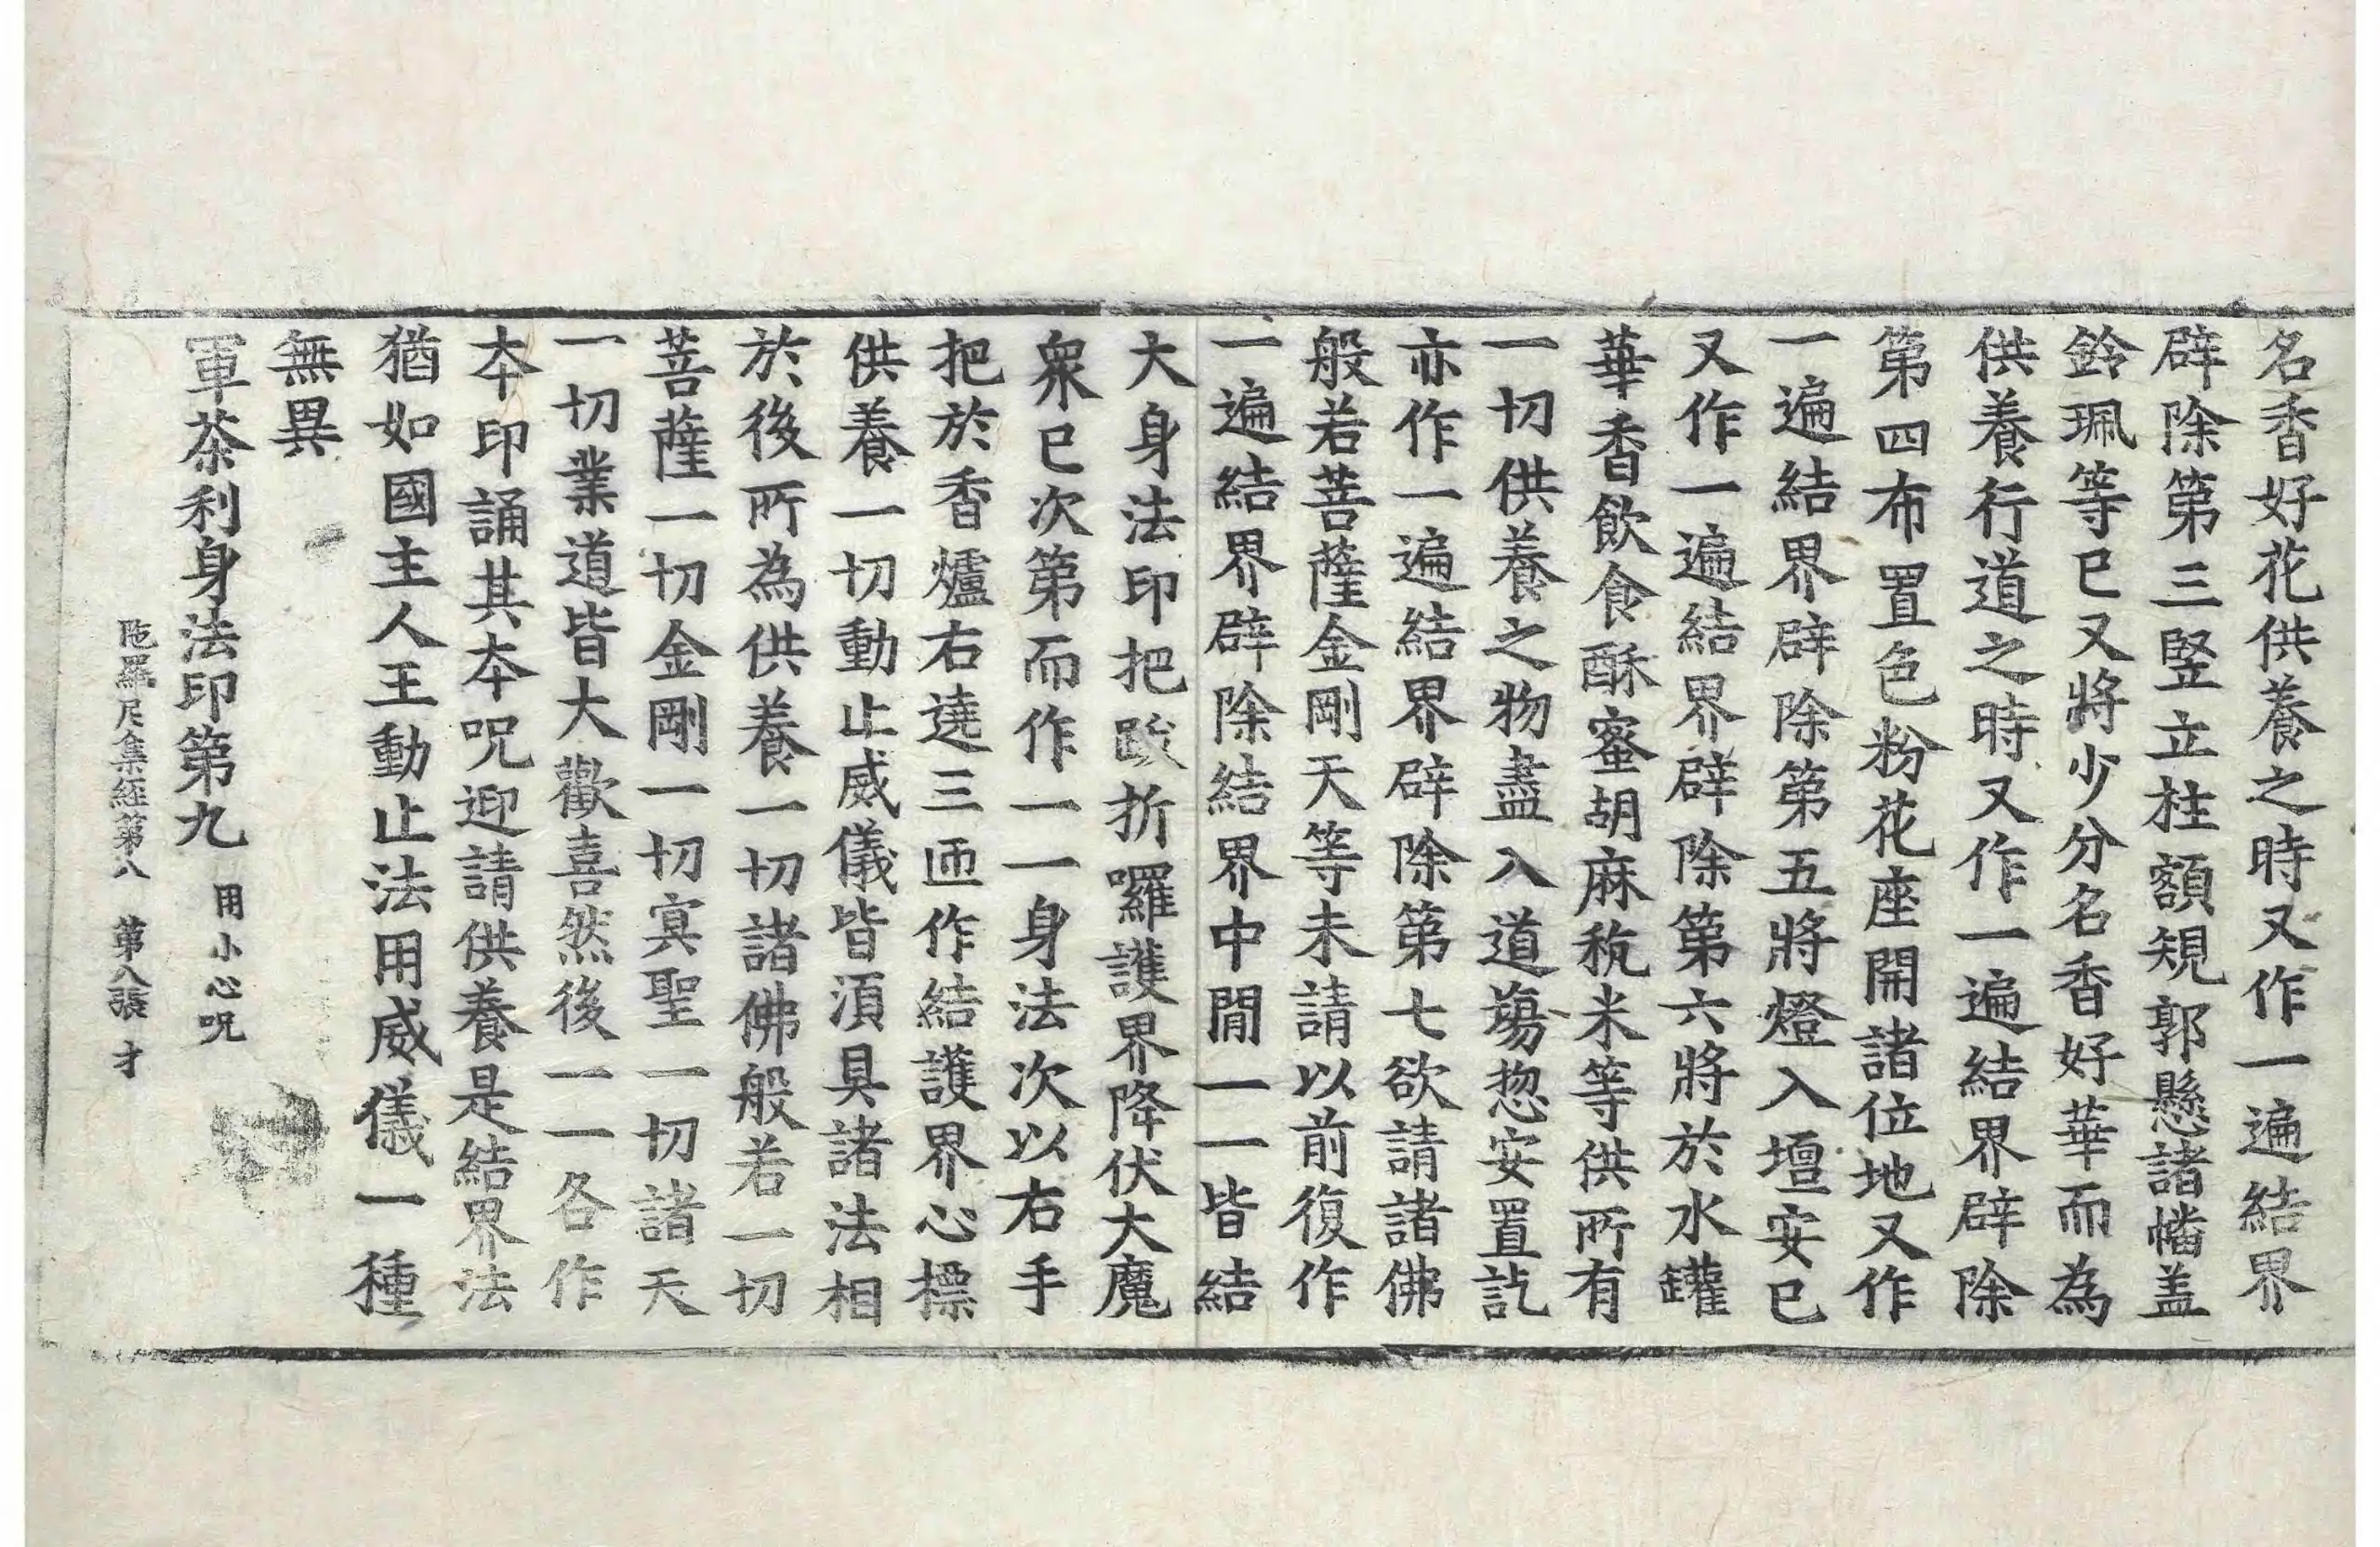 名香好花供養之時又作一遍結界
辟除第三竪立柱額規郭懸諸幡盖
鈴珮等已又將少分名香好華而為
供養行道之時又作一遍結界辟除
第四布置色粉花座開諸位地又作
一遍結界辟除第五將燈入壇安已
又作一遍結界辟除第六將於水罐
華香飲食酥蜜胡麻秔米等供所有
一切供養之物盡入道塲惣安置訖
亦作一遍結界辟除第七欲請諸佛
般若菩薩金剛天等未請以前復作
一遍結界辟除結界中閒一一皆結
大身法印把跋折囉護界降伏大魔
衆已次第而作一一身法次以右手
把於香爐右遶三迊作結護界心摽
供養一切動止威儀皆湏具諸法相
於後所為供養一切諸佛般若一切
菩薩一切金剛一切冥聖一切諸天
一切業道皆大歡喜然後一一各作
本印誦其本呪迎請供養是結界法
猶如國主人王動止法用威儀一種
無異
軍茶利身法印第九 用小心呪
陁羅尼集經第八 第八張 才